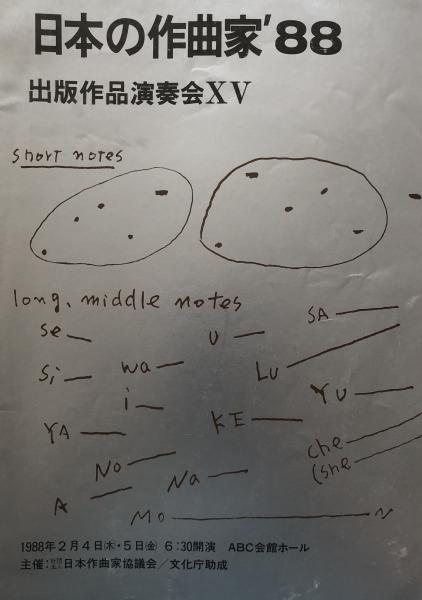 日本の作曲家'88
出版作品演奏会XV
short notes
long, middle notes
Se
U
SA
Si
wa
LU
i
YU
YA
KE
che
(she
No
Na
A
Mo N
1988年2月4日(木)・5日(金) 6:30開演 ABC会館ホール
主催:社団法人日本作曲家協議会/文化庁助成